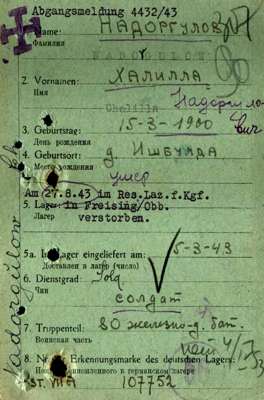 Abgangsmeldung 4432/43
1. Name: НАДОРГУЛОВ
Фамилия
2. Vornamen: ХАЛИЛЛА
Имя
Chalilla
Надоргулов
3. Geburtstag: 15-3-1900
День рождения
4. Geburtsort: д. Ишбулда
Место рождения
умер
Am 27.8.43 im Res.Laz.f.Kgf.
5. Lager: in Freising/Obb.
Лагер verstorben.
5a. Im Lager eingeliefert am: 5-3-43
Доставлен в лагер (число)
6. Dienstgrad: Sold
Чин
солдат
7. Truppenteil: 80 железно-д. бат.
Воинская часть
8. Erkennungsmarke des deutschen Lagers:
в германском лагере
ST. VII A 107752
Nadorgulow